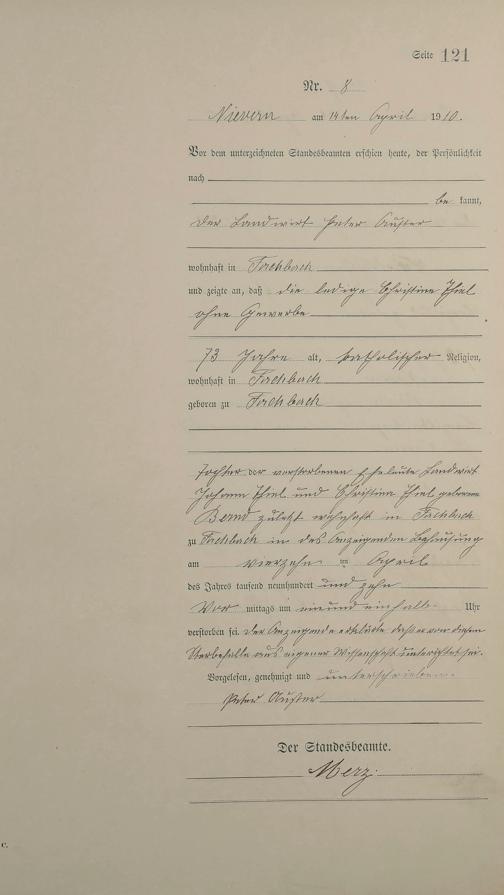 Seite 121
Nr. 8
Nievern am 14ten April 1910.
Vor dem unterzeichneten Standesbeamten erschien heute, der Persönlichkeit
nach
be kannt,
der Landwirt Peter
wohnhaft in Fachbach
und zeigte an, daß die ledige Christina Thiel
ohne Gewerbe
73 Jahre alt, katholischer Religion,
wohnhaft in Fachbach
geboren zu Fachbach
Tochter der verstorbenen Eheleute Landwirt
Johann Thiel und Christina Thiel geborene
zuletzt wohnhaft in Fachbach
zu Fachbach in des Anzeigenden Behausung
am vierzehn ten April
des Jahres tausend neunhundert und zehn
Vor mittags um neunundeinhalb Uhr
verstorben sei. Der Anzeigende erklärte daß er von diesem
Sterbefalle aus eigener Wissenschaft unterrichtet sei.
Vorgelesen, genehmigt und unterschrieben.
Peter
Der Standesbeamte.
Merz.
c.